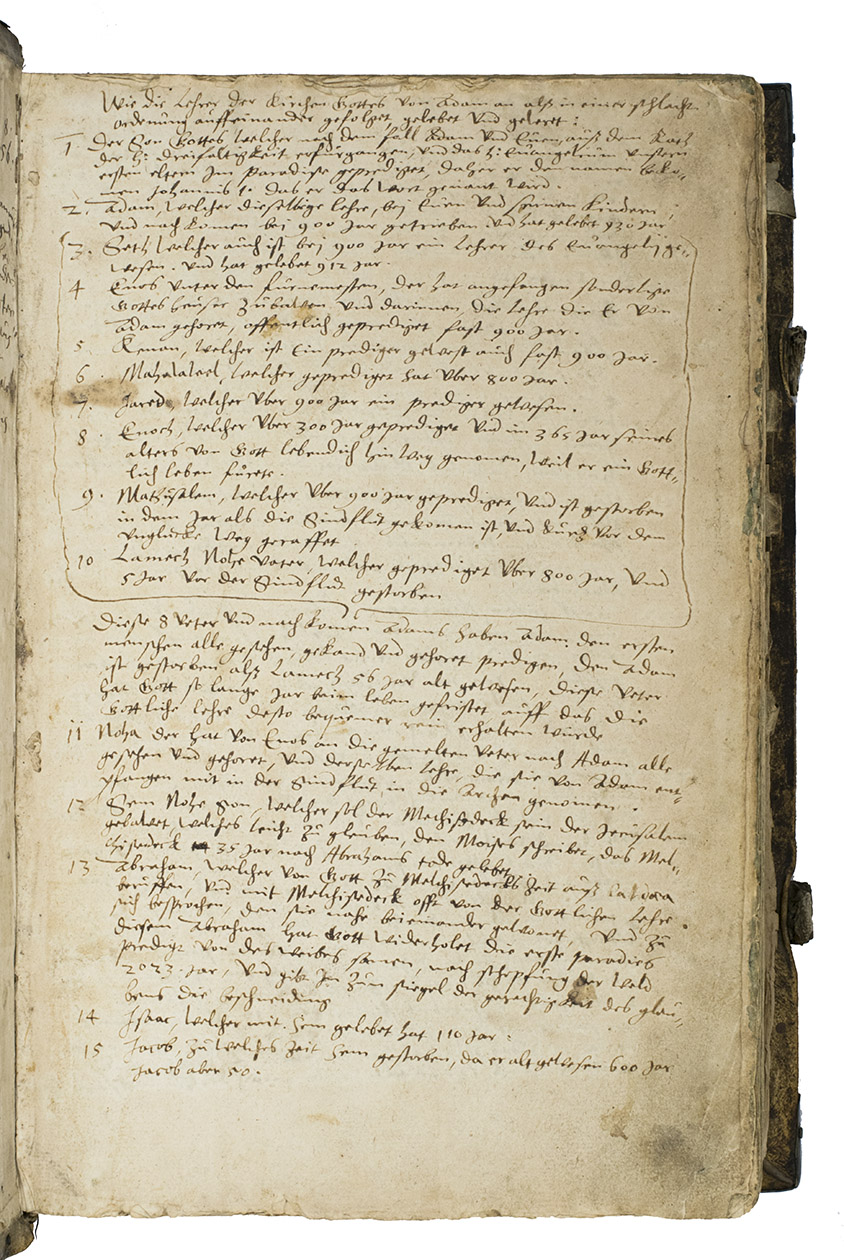 Wie die Lehrer der Kirchen Gottes von Adam an alß in einer schlacht
ordenung auffeinander gefolget, gelebet vnd geleret:
1. Der Son Gottes, welcher nach dem fall Adam vnd Euen, auß dem Rath
der h: dreifaltigkeit erfürgangen, vnd das h: Euangelium vnsern
ersten eltern im Paradise geprediget, daher er den namen beko-
men Johannis 1. das er das Wort genant wird.
2. Adam, welcher dieselbige lehre, bej Euen vnd seinen Kindern
vnd nachkomen bei 900 Jar getrieben vnd hat gelebet 930 Jar
3. Seth welcher auch ist bej 900 Jar ein Lehrer des Euangelij ge-
wesen. vnd hat gelebet 912 Jar.
4 Enos vnter den fürnemesten, der hat angefangen sonderliche
Gottes heuser zubawen vnd darinnen, die lehre die Er von
Adam gehoret, offentlich geprediget fast 900 Jar.
5 Kenan, welcher ist Ein prediger gewest auch fast 900 Jar.
6. Mahalaleel, welcher geprediget hat vber 800 Jar.
7. Jared, welcher vber 900 Jar ein prediger gewesen.
8 Enoch, welcher vber 300 Jar geprediget vnd im 365 Jar seines
alters von Gott lebendich hin weg genomen, weil er ein Gott-
lich leben fürete.
9. Mathusalem, welcher vber 900 Jar geprediget, vnd ist gestorben
in dem Jar als die Sindflut gekomen ist, vnd kurtz vor dem
vnglücke weg geraffet
10 Lamech Nohe vater, welcher geprediget vber 800 Jar, vnd
5 Jar vor der Sindflut gestorben
Diese 8 Veter vnd nachkomen Adams haben Adam den ersten
menschen alle gesehen, gekand vnd gehoret predigen, den Adam
ist gestorben alß Lamech 56 Jar alt gewesen, diese Veter
hat Gott so lange Jar beim leben gefristet auff das die
Gottliche lehre desto bequemer rein erhalten würde
11 Noha der hat von Enos an die gemelten Veter nach Adam alle
gesehen vnd gehoret, vnd derselben lehre, die sie von Adam ent-
pfangen mit in der Sindflut in die Archen genomen.
12 Sem Nohe Son, welcher sol der Mechisedeck sein der Jerusalem
gebawet welches leicht zu glauben, den Moises schreibet, das Mel-
chisedeck 35 Jar nach Abrahams tode gelebet
13 Abraham, welcher von Gott zu Melchisedecks zeit auß Caldaa
beruffen, vnd mit Melchisedeck offt von der Gottlichen lehre
sich besprochen, den sie nahe beieinander gewonet, vnd zu
diesem Abraham hat Gott widerholet die erste paradies
predigt von des Weibes samen, nach schepfung der Weld
2023 Jar, vnd gibt Im zum siegel der gerechtigkeit des glau-
bens die beschneidung
14 Isaac, welcher mit Sem gelebet hat 110 Jar:
15 Jacob, zu welches zeit Sem gestorben, da er alt gewesen 600 Jar
Jacob aber 50.